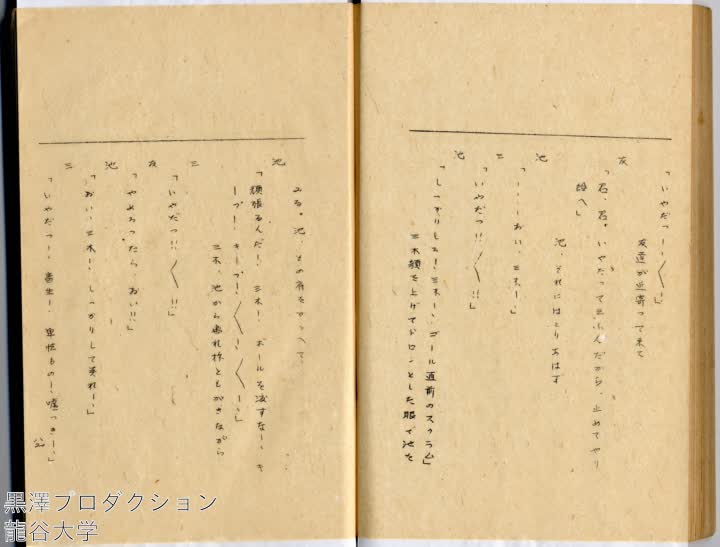 「いやだっー！〱」
友達が近寄って来て
友
「君、君。いやだって云ふんだから、止めてやり
給へ」
池、それにはとりあはず
池
「‥‥おい、三木ー！」
三
「いやだっ!!〱!!」
池
「しっかりしろ！三木ー！ゴール直前のスクラム」
三木顔を上げてドロンとした眼で池を
みる。池、その肩を
池
「頑張るんだー！三木ー！ボールを渡すなー！キ
ープー！キープー！〱ー！〱ー！」
三木、池から離れ様ともがきながら
三
「いやだっ!!〱!!」
友
「やめろったら、おい!!」
池
「おい、三木ー！しっかりして呉れー！」
三
「いやだっー！畜生ー！卑怯もの！嘘っきー！」
黒澤プロダクション
龍谷大学